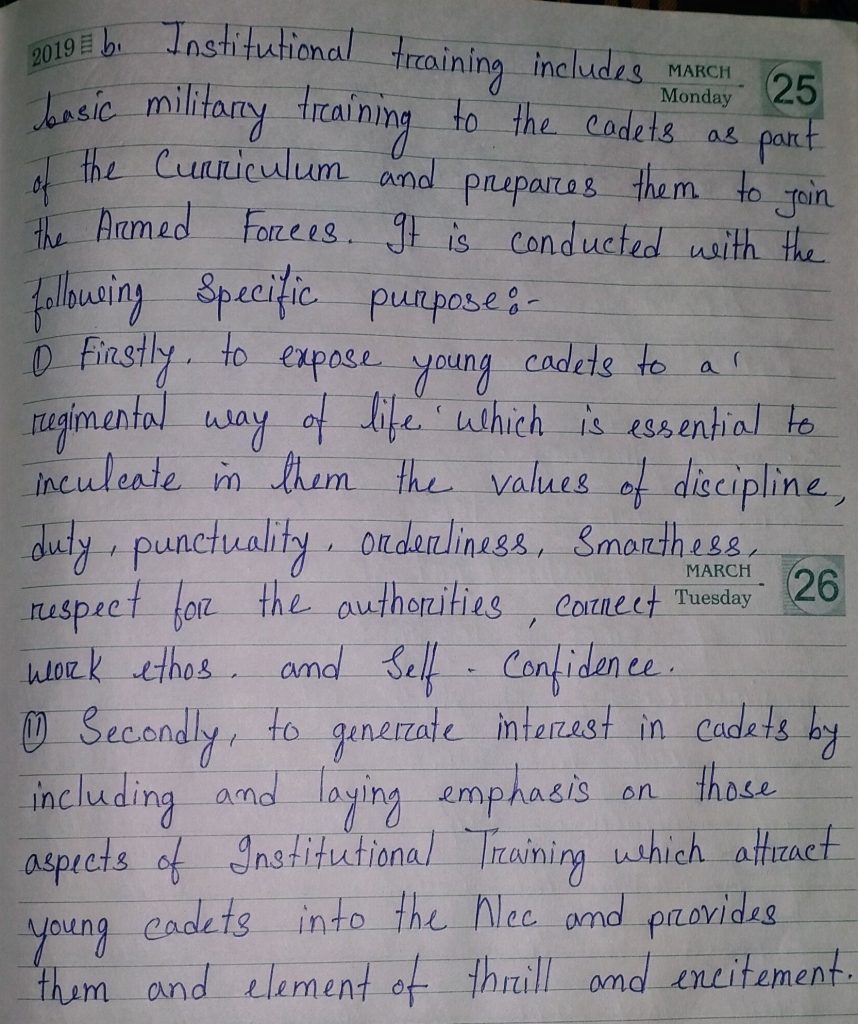 2019 b. Institutional training includes MARCH
Monday 25
basic military training to the cadets as part
of the Curriculum and prepares them to join
the Armed Forces. It is conducted with the
following Specific purpose:-
(i) Firstly, to expose young cadets to a '
regimental way of life' which is essential to
inculcate in them the values of discipline,
duty, punctuality, orderliness, Smarthess,
MARCH
Tuesday 26
respect for the authorities, correct
work ethos, and Self-Confidence.
(ii) Secondly, to generate interest in cadets by
including and laying emphasis on those
aspects of Institutional Training which attract
young cadets into the Ncc and provides
them and element of thrill and excitement.